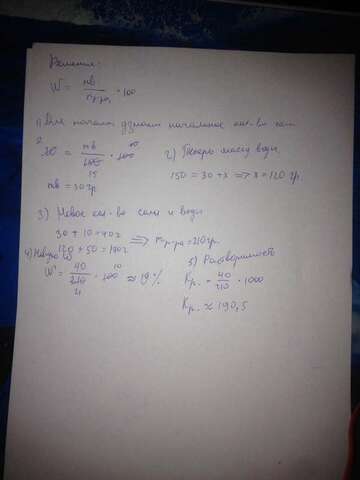 Решение:
W = mв / mр-ра · 100
1) Для начала узнаем начальное кол-во соли
20 = mв / 150 · 100
15
mв = 30 гр
2) Теперь массу воды
150 = 30 + x ⟹ x = 120 гр
3) Новое кол-во соли и воды
30 + 10 = 40 г
120 + 50 = 170 г
⟹ mр-ра = 210 гр
4) Новую W
W = 40 / 210 · 100 ≈ 19 %
10
21
5) Растворимость
Kр. = 40 / 210 · 1000
Kр. ≈ 190,5